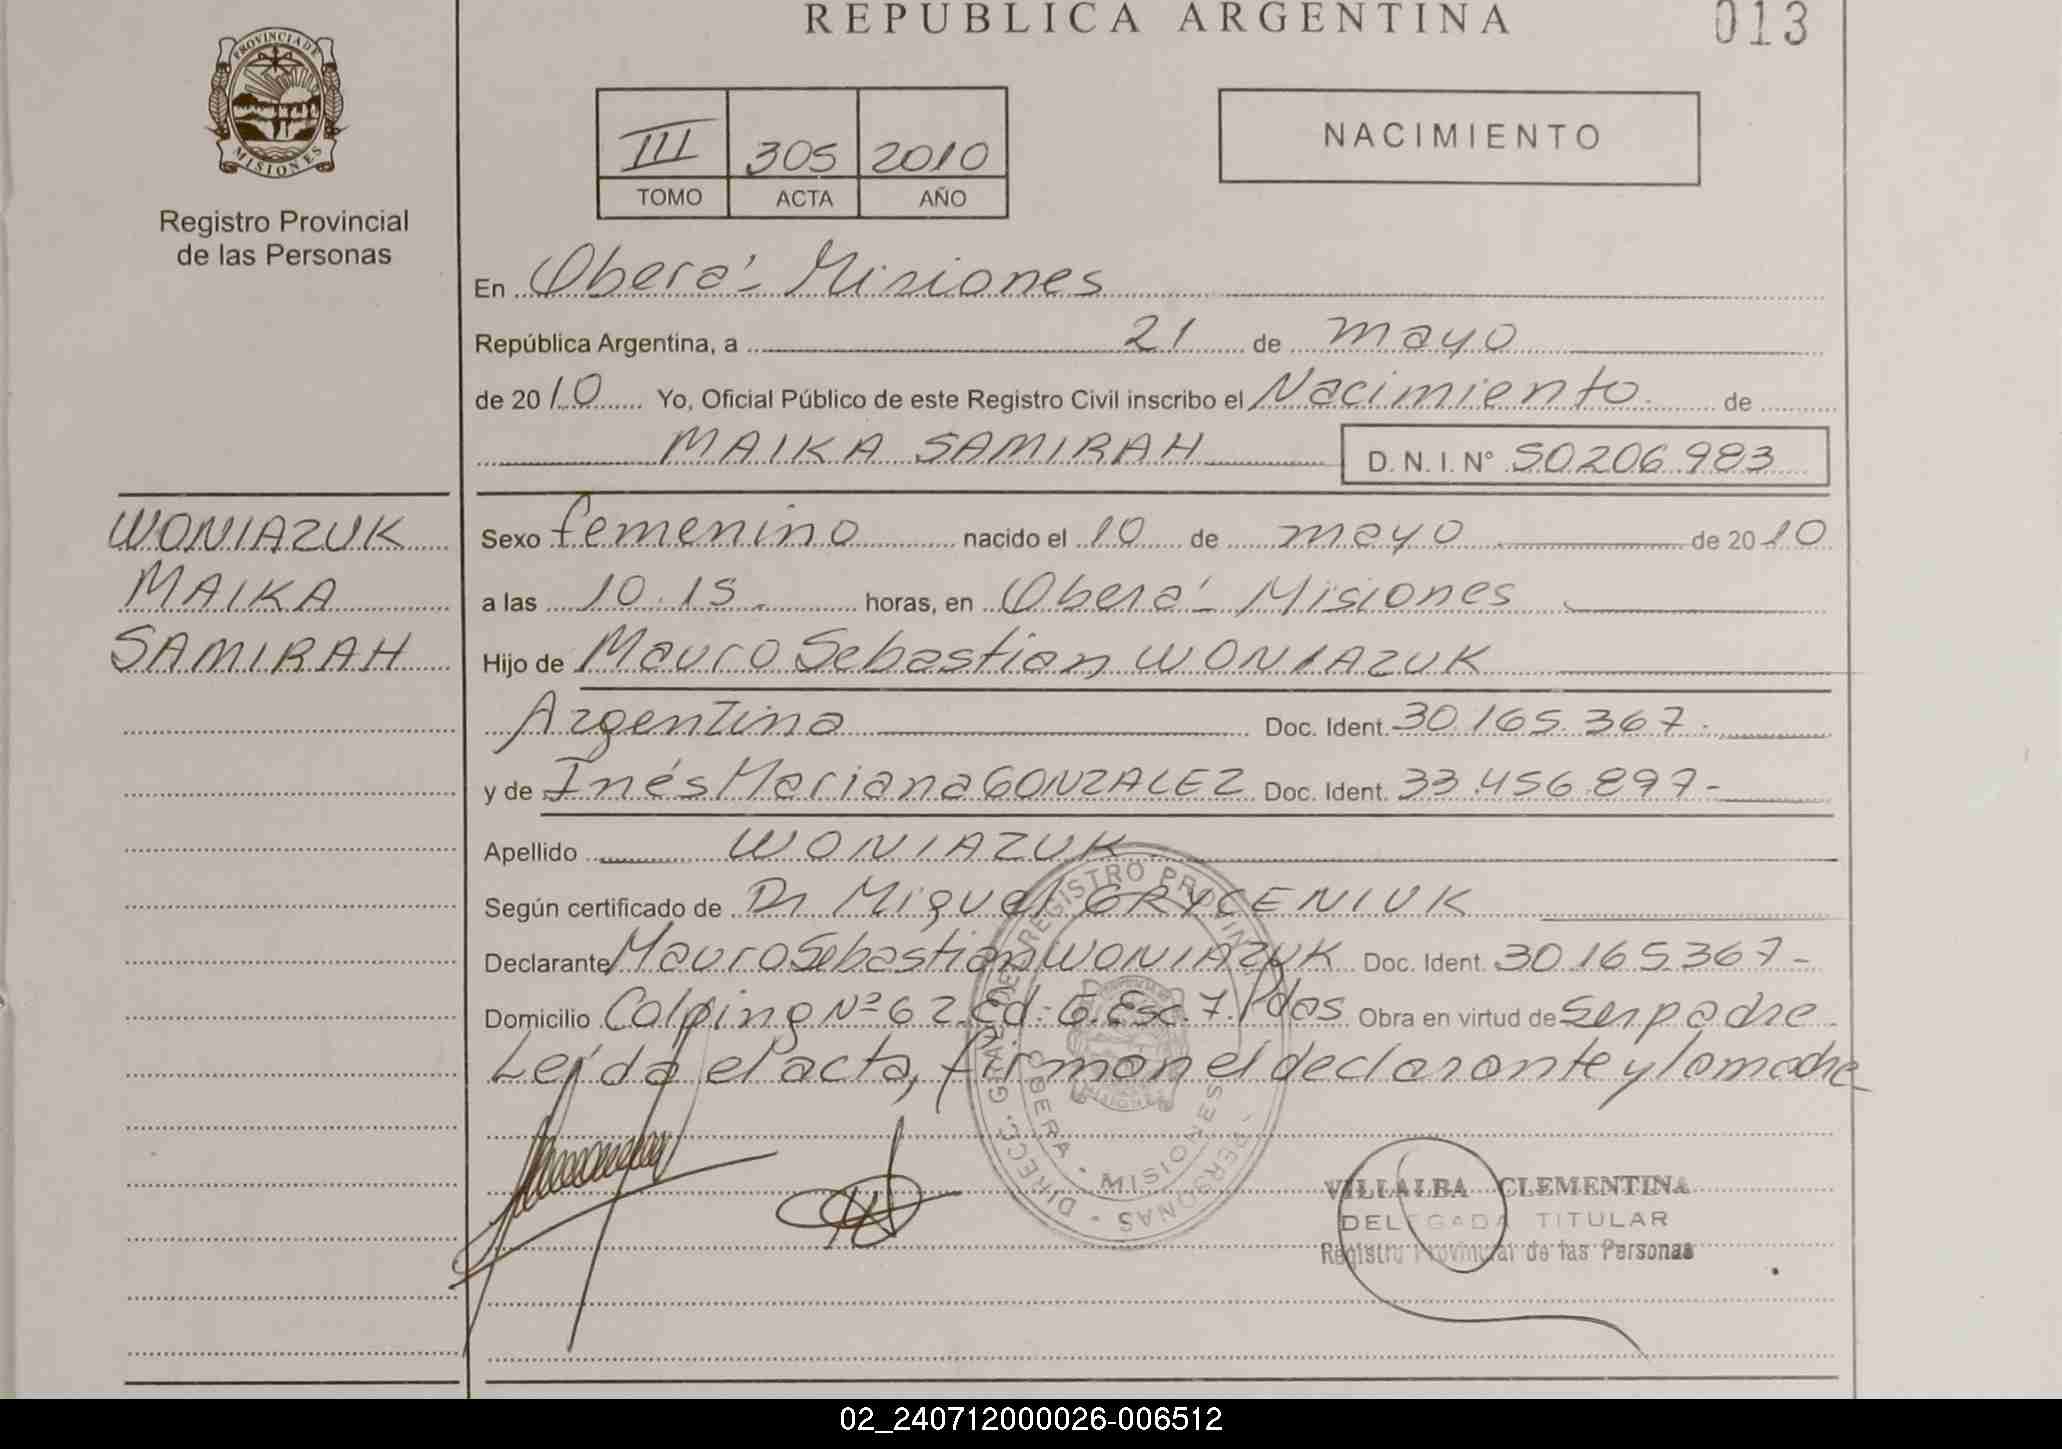 REPUBLICA ARGENTINA
013
PROVINCIA DE
MISIONES
Registro Provincial
de las Personas
III 305 2010
TOMO ACTA AÑO
NACIMIENTO
En Oberá - Misiones
República Argentina, a 21 de mayo
de 2010 Yo, Oficial Público de este Registro Civil inscribo el Nacimiento de
MAIKA SAMIRAH D.N.I. N° 50206.983
WONIAZUK
MAIKA
SAMIRAH
Sexo femenino nacido el 10 de mayo de 2010
a las 10.15 horas, en Oberá - Misiones
Hijo de Mauro Sebastian WONIAZUK
Argentino Doc. Ident. 30.165.367.
y de Inés Mariana GONZALEZ Doc. Ident. 33.456.897-
Apellido WONIAZUK
Según certificado de Dr Miguel GRYCENIUK
Declarante Mauro Sebastian WONIAZUK Doc. Ident. 30.165.367-
Domicilio Colping Nº 62. Ed: G. Esc. 7. Pdas Obra en virtud de ser padre.
Leída el acta, firman el declarante y la madre
DIREC. GRAL. DEL REGISTRO PROVIN. PERSONAS
OBERA - MISIONES
VILLALBA CLEMENTINA
DELEGADA TITULAR
Registro Provincial de las Personas
02_240712000026-006512